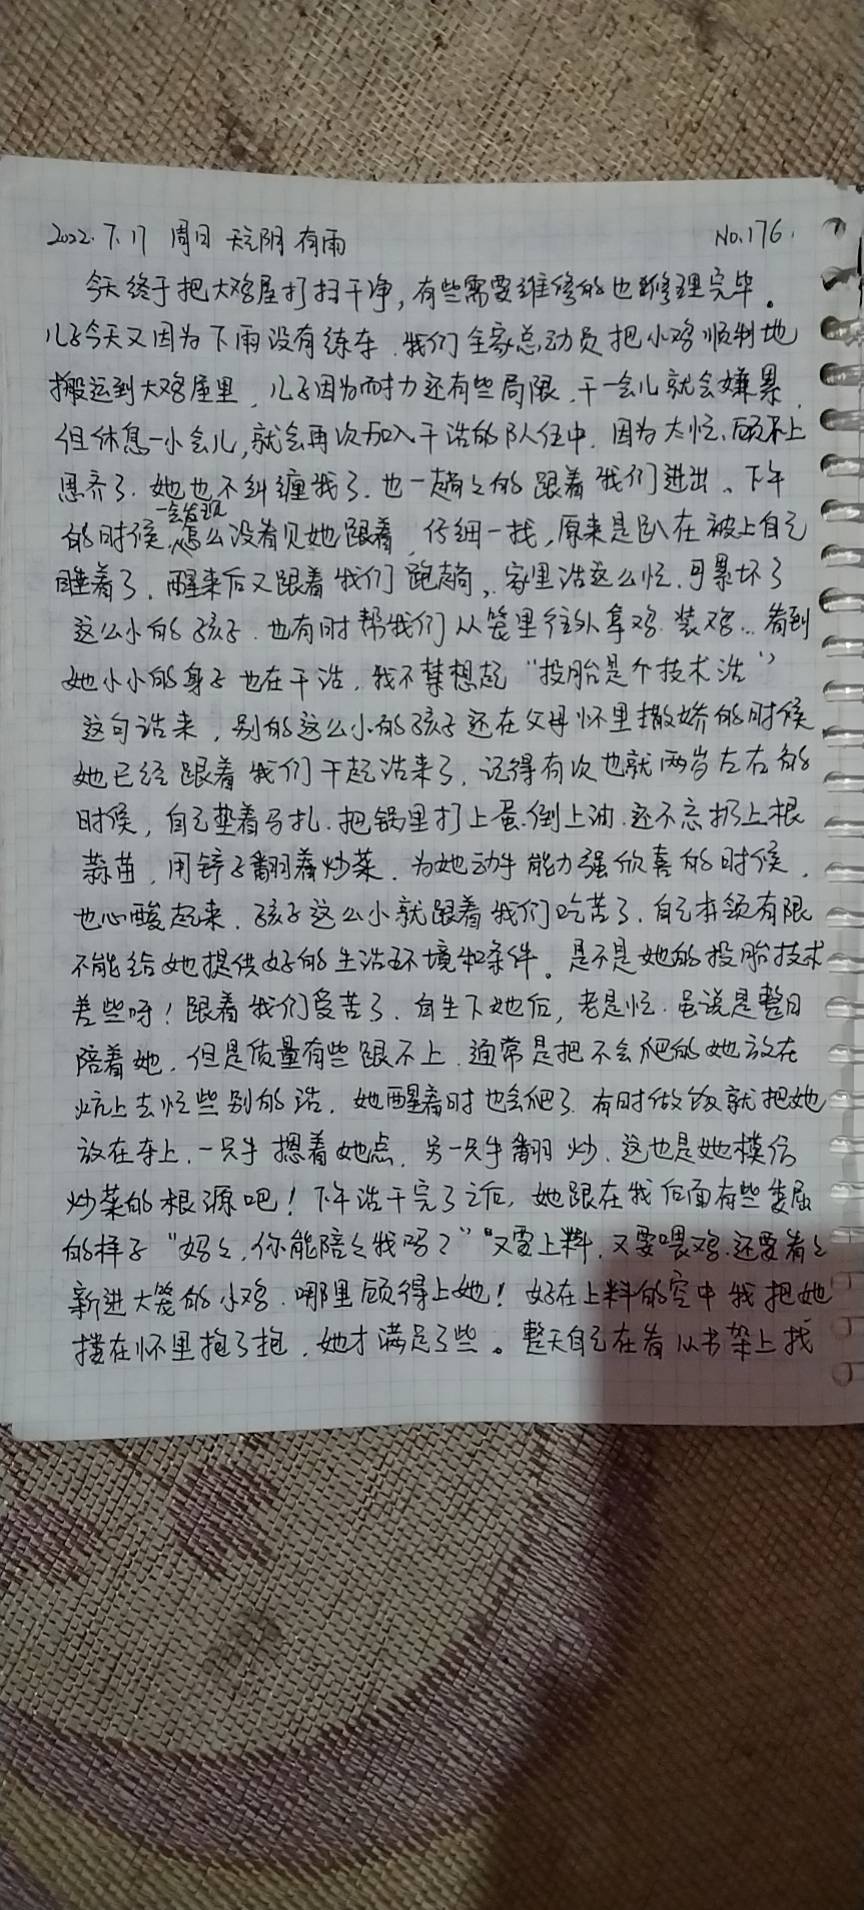 2022.7.17 周日 天气阴 有雨 No.176.
今天终于把大鸡屋打扫干净,有些需要维修的也都修理完毕。
儿子今天又因为下雨没有练车.我们全家总动员把小鸡顺利地
搬运到大鸡屋里,儿子因为耐力还有些局限,干一会儿就会嫌累,
但休息一小会儿,就会再次加入干活的队伍中.因为太忙,顾不上
思齐了.她也不纠缠我了.也一趟々的跟着我们进出。下午
一会发现
的时候,怎么没看见她跟着,仔细一找,原来是趴在被上自己
睡着了.醒来后又跟着我们跑趟,家里活这么忙.可累坏了
这么小的孩子.也有时帮我们从笼里往外拿鸡.装鸡..看到
她小小的身子也在干活,我不禁想起“投胎是个技术活”
这句话来,别的这么小的孩子还在父母怀里撒娇的时候
她已经跟着我们干起活来了,记得有次也就两岁左右的
时候,自己垫着马扎.把锅里打上蛋.倒上油.还不忘扔上根
蒜苗,用铲子翻着炒菜.为她动手能力强欣喜的时候,
也心酸起来.孩子这么小就跟着我们吃苦了.自己本领有限
不能给她提供好的生活环境和条件。是不是她的投胎技术
差些呀!跟着我们受苦了.自生下她后,老是忙.虽说是整日
陪着她,但是质量有些跟不上.通常是把不会爬的她放在
炕上去忙些别的活.她醒着时也会爬了.有时做饭就把她
放在车上,一只手摁着她点,另一只手翻炒.这也是她模仿
炒菜的根源吧!下午活干完了之后,她跟在我后面有些委屈
的样子“妈々,你能陪々我吗?”“又要上料.又要喂鸡.还要看々
新进大笼的小鸡.哪里顾得上她!好在上料的空中我把她
搂在怀里抱了抱,她才满足了些。整天自己在看从书架上找